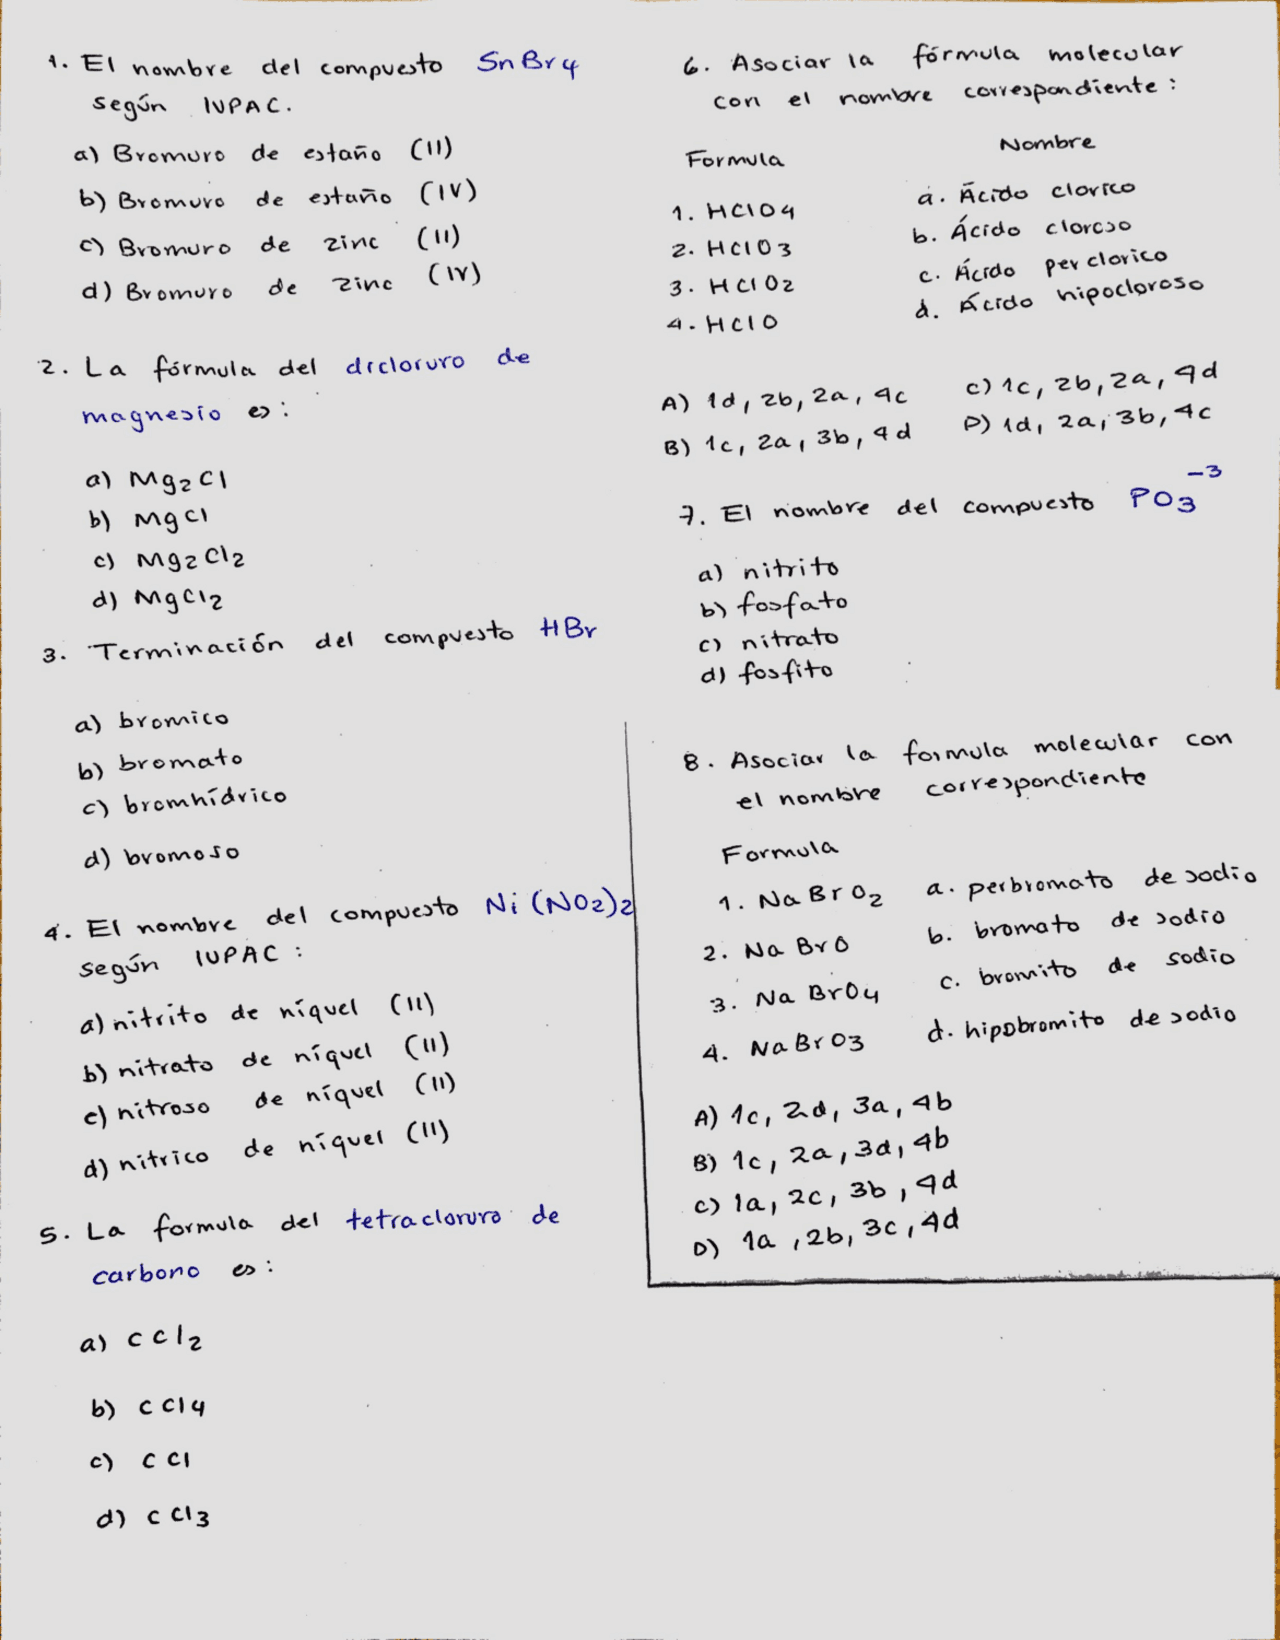 1. El nombre del compuesto SnBr4
según IUPAC.
a) Bromuro de estaño (II)
b) Bromuro de estaño (IV)
c) Bromuro de zinc (II)
d) Bromuro de zinc (IV)
2. La fórmula del dicloruro de
magnesio es:
a) Mg2Cl
b) MgCl
c) Mg2Cl2
d) MgCl2
3. Terminación del compuesto HBr
a) bromico
b) bromato
c) bromhídrico
d) bromoso
4. El nombre del compuesto Ni(NO2)2
según IUPAC:
a) nitrito de níquel (II)
b) nitrato de níquel (II)
c) nitroso de níquel (II)
d) nitrico de níquel (II)
5. La formula del tetracloruro de
carbono es:
a) CCl2
b) CCl4
c) CCl
d) CCl3
6. Asociar la fórmula molecular
con el nombre correspondiente:
Formula Nombre
1. HClO4 a. Ácido clorico
2. HClO3 b. Ácido cloroso
3. HClO2 c. Ácido perclorico
4. HClO d. Ácido hipocloroso
A) 1d, 2b, 2a, 4c C) 1c, 2b, 2a, 4d
B) 1c, 2a, 3b, 4d D) 1d, 2a, 3b, 4c
7. El nombre del compuesto PO3-3
a) nitrito
b) fosfato
c) nitrato
d) fosfito
8. Asociar la formula molecular con
el nombre correspondiente
Formula
1. NaBrO2 a. perbromato de sodio
2. NaBrO b. bromato de sodio
3. NaBrO4 c. bromito de sodio
4. NaBrO3 d. hipobromito de sodio
A) 1c, 2d, 3a, 4b
B) 1c, 2a, 3d, 4b
C) 1a, 2c, 3b, 4d
D) 1a, 2b, 3c, 4d